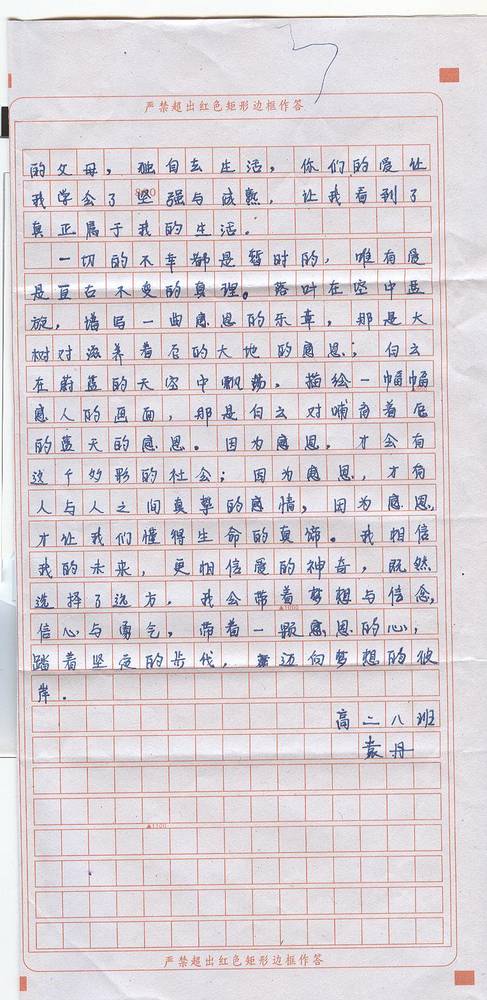 严禁超出红色矩形边框作答
的父母，独自去生活，你们的爱让
我学会了坚强与成熟，让我看到了
真正属于我的生活。
一切的不幸都是暂时的，唯有爱
是亘古不变的真理。落叶在空中盘
旋，谱写一曲感恩的乐章，那是大
树对滋养着它的大地的感恩；白云
在蔚蓝的天空中飘荡，描绘一幅幅
感人的画面，那是白云对哺育着它
的蓝天的感恩。因为感恩，才会有
这个妙形的社会；因为感恩，才有
人与人之间真挚的感情，因为感恩，
才让我们懂得生命的真谛。我相信
我的未来，更相信爱的神奇，既然
选择了远方，我会带着梦想与信念，
信心与勇气，带着一颗感恩的心，
踏着坚定的步伐，迈向梦想的彼
岸。
高二八班
袁丹
▲1100
严禁超出红色矩形边框作答